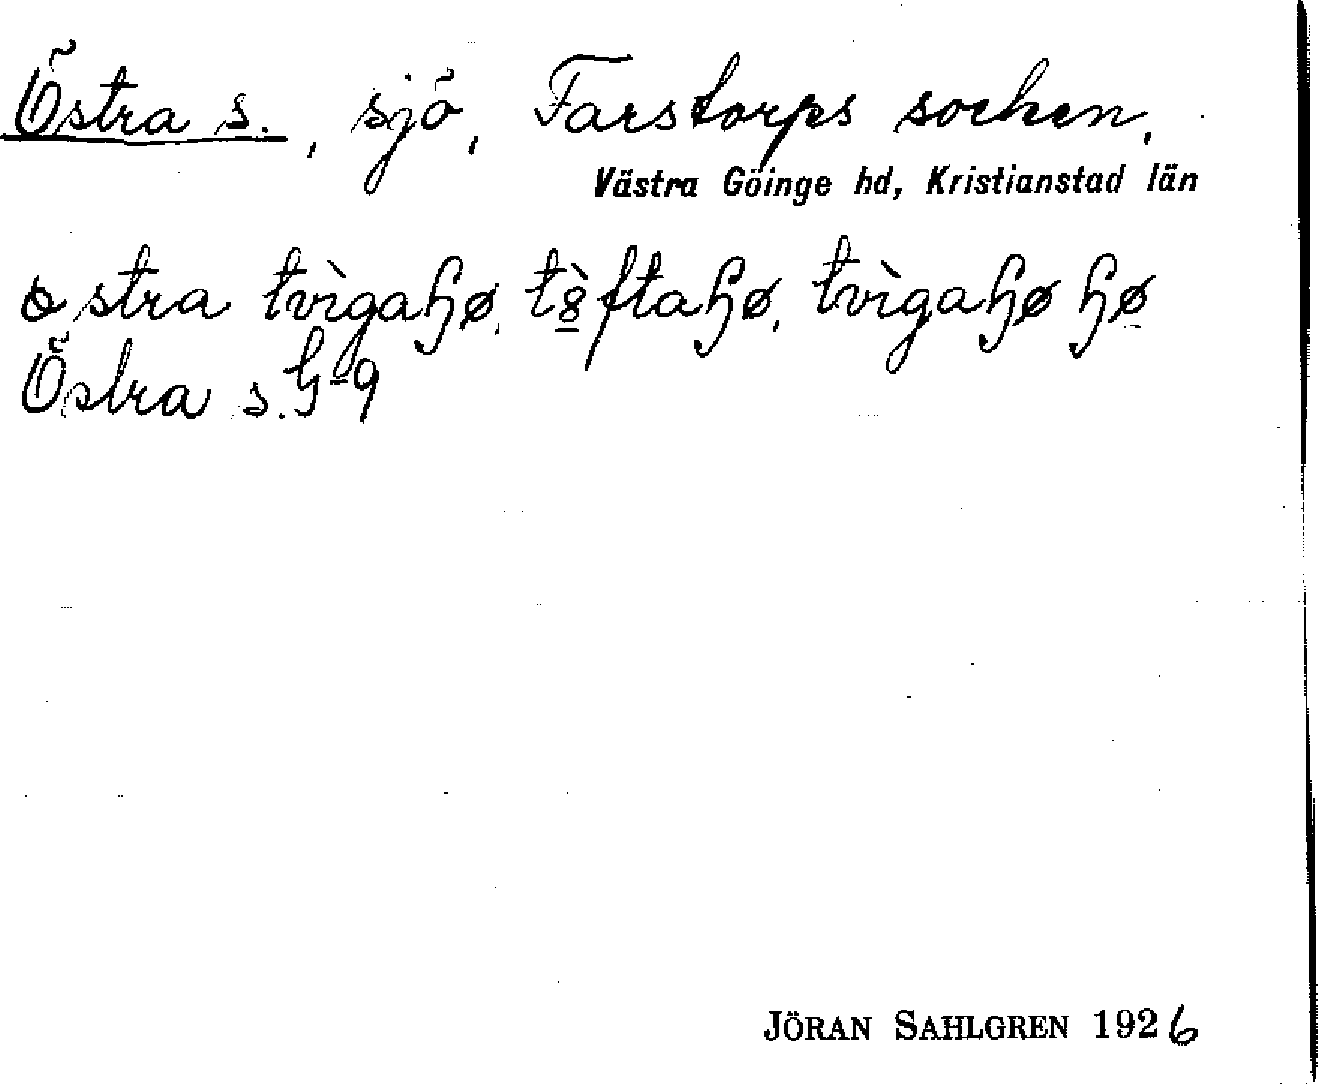 Östra s., sjö, Farstorps socken,
Västra Göinge hd, Kristianstad län
östra tvìgaɧø, tö̀ftaɧø, tvìgaɧø ɧø
Östra s. G-9
JÖRAN SAHLGREN 1926